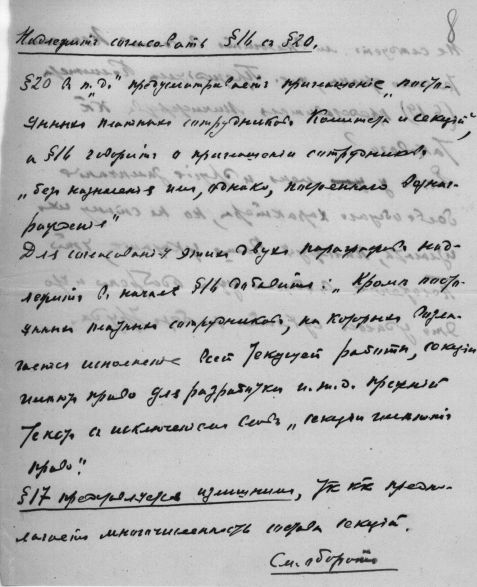 8
Надлежит согласовать § 16 с § 20.
§ 20 в п. „д" предусматривает приглашение „посто-
янных платных сотрудников Комитета и секций",
а § 16 говорит о приглашении сотрудников
„без назначения им, однако, постоянного вознаг-
раждения"
Для согласования этих двух параграфов над-
лежит в начале § 16 добавить: „Кроме посто-
янных платных сотрудников, на которых возла-
гается исполнение всей текущей работы, секции
имеют право для разработки и т.д. прежний
текст с исключением слов „секции имеют
право".
§ 17 представляется излишним, тк кк предпо-
лагает многочисленность состава секций.
См. оборот